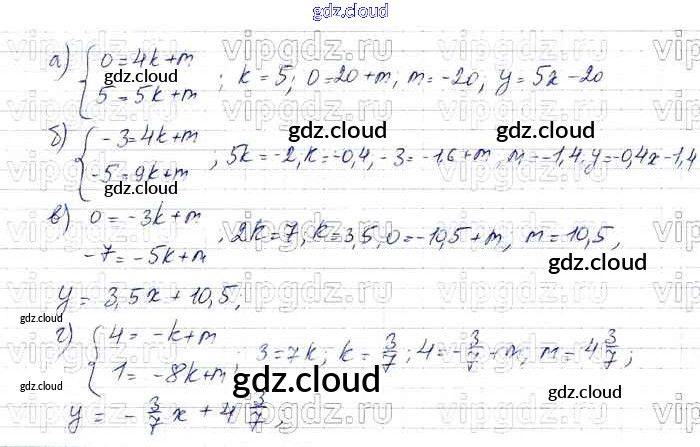 gdz.cloud
а) { 0=4k+m
5=5k+m ; k=5; 0=20+m; m=-20, y=5x-20
б) { -3=4k+m
-5=9k+m ; 5k=-2, k=-0,4, -3=-1,6+m, m=-1,4. y=-0,4x-1,4
в) 0=-3k+m
-7=-5k+m , 2k=7, k=3,5, 0=-10,5+m, m=10,5,
y=3,5x+10,5,
г) { 4=-k+m
1=-8k+m ; 3=7k; k=3/7; 4=-3/7+m, m=4 3/7;
y=-3/7x+4 3/7,
gdz.cloud
gdz.cloud
gdz.cloud
gdz.cloud
gdz.cloud
gdz.cloud
gdz.cloud
gdz.cloud
gdz.cloud
gdz.cloud
gdz.cloud